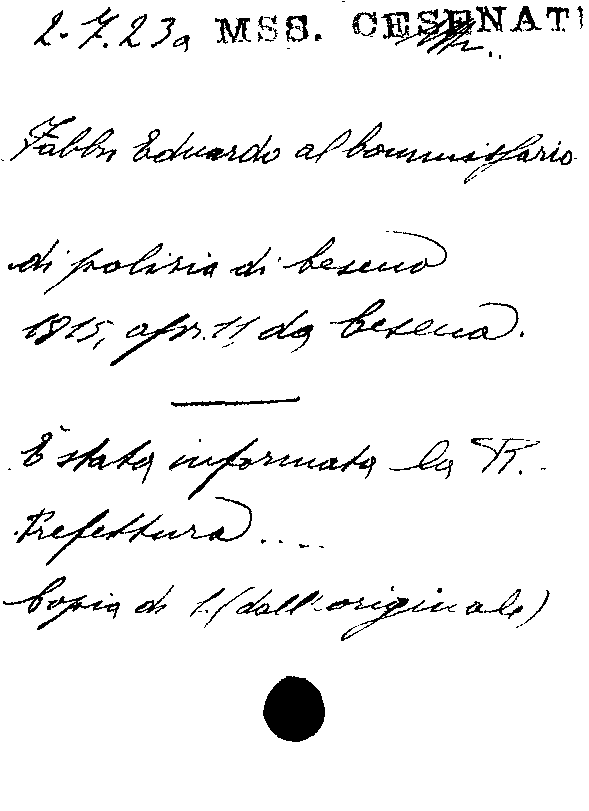 2.7.23a MSS. CESENATI
Fabbri Eduardo al Commissario
di polizia di Cesena
1815, apr. 11, da Cesena.
È stata informata la R.
Prefettura ....
Copia di 1. (dall'originale)